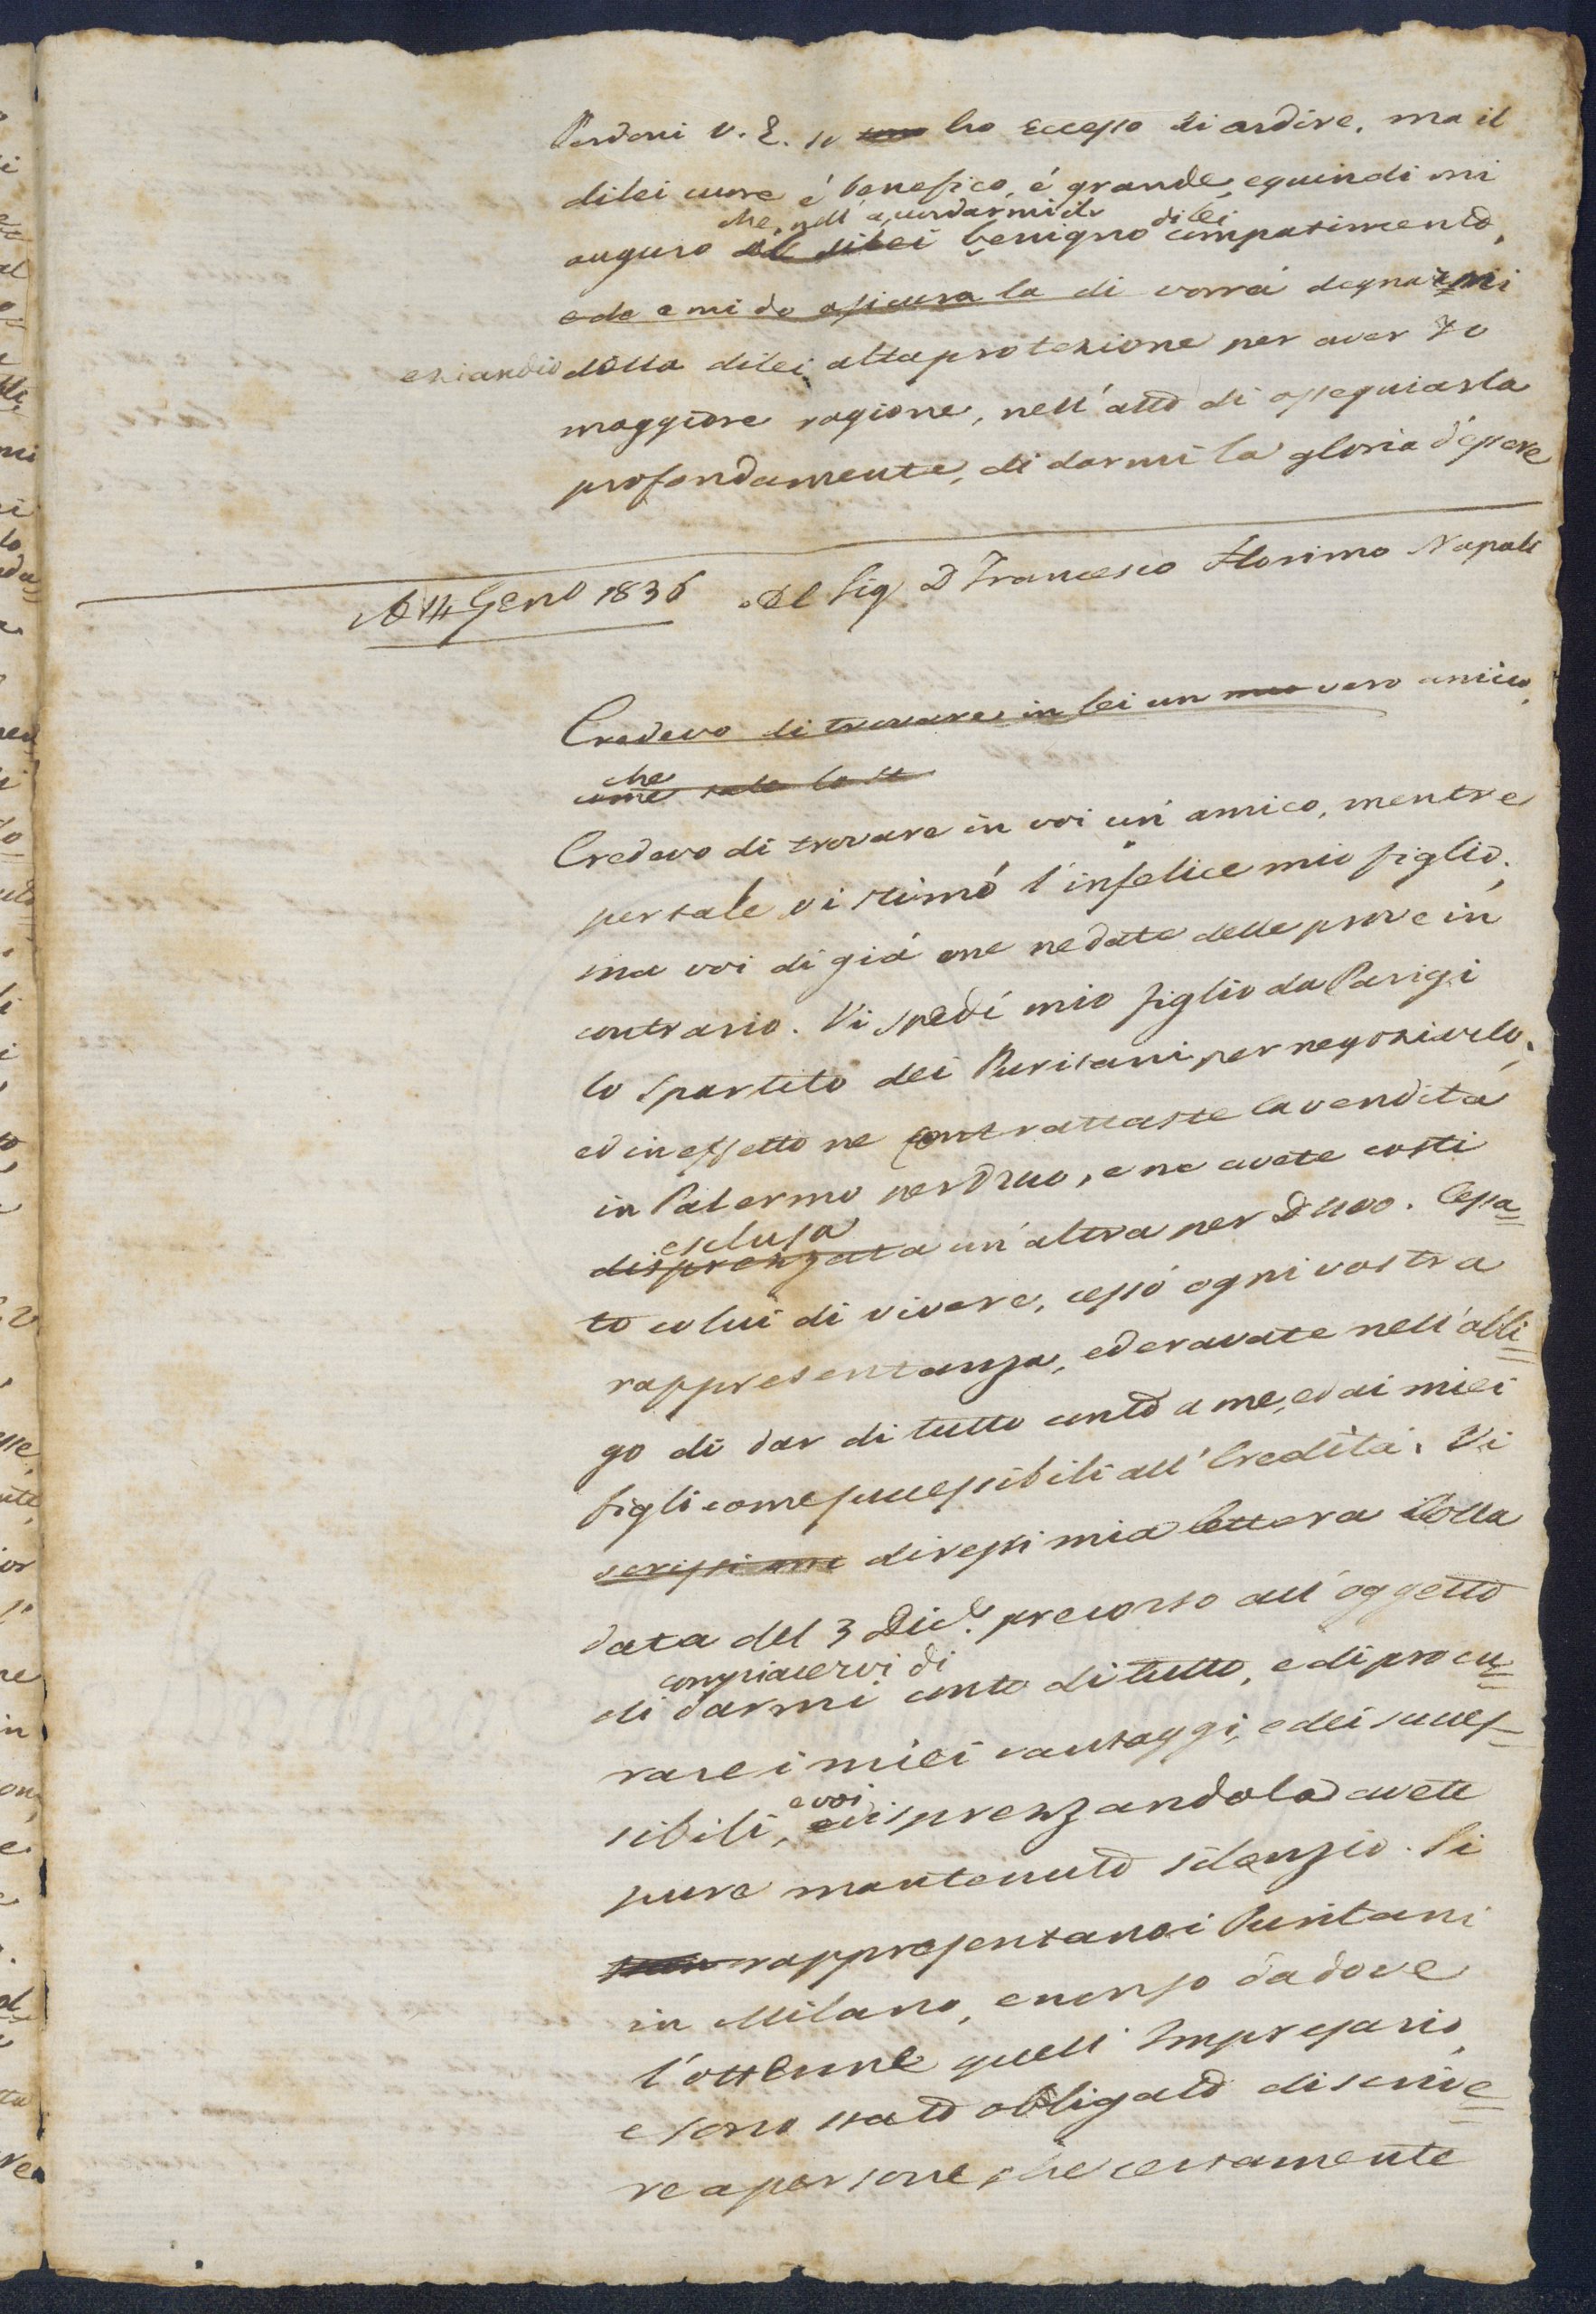 Perdoni V. E. se ho ecceſso di ardire, ma il
dilei cuore é benefico, é grande, equindi mi
che, nell' accordarmi il dilei
auguro benigno compatimento,
e mi do aſicura la di vorrá degnarmi
eziandio della dilei alta protezione per aver Io
maggiore ragione, nell'atto di oſsequiarla
profondamente, di darmi la gloria d'eſsere
A 14 Geno 1836 Al Sig D Francesco Florimo Napoli
Credevo di trovare in lei un mio vero amico,
che
come tale lo
Credevo di trovare in voi un' amico, mentre
per tale vi stimó l'infelice mio figlio;
ma voi di giá me ne date delle prove in
contrario. Vi spedí mio figlio da Parigi
lo spartito dei Puritani per negoziarlo;
ed in effetto ne contrattaste la vendita
in Palermo per D 200, e ne avete costi
esclusa
disprezzata un'altra per D 1100. Ceſsa=
to colui di vivere, ceſsó ogni vostra
rappresentanza, ed eravate nell'obbli=
go di dar di tutto conto a me, ed ai miei
figli come succeſsibili all'Eredita. Vi
scriſsi direſsi mia lettera colla
data del 3 Dic.e precorso all'oggetto
compiacervi di
di darmi conto di tutto, e di procu=
rare i miei vantaggi, e dei succeſ=
e voi
sibili, disprezzandola avete
pure mantenuto silenzio. Si
rappreſentano i Puritani
in Milano, e non so da dove
l'ottenne quell' Impreſario,
e sono stato obbligato di scrive=
re a persone, che certamente